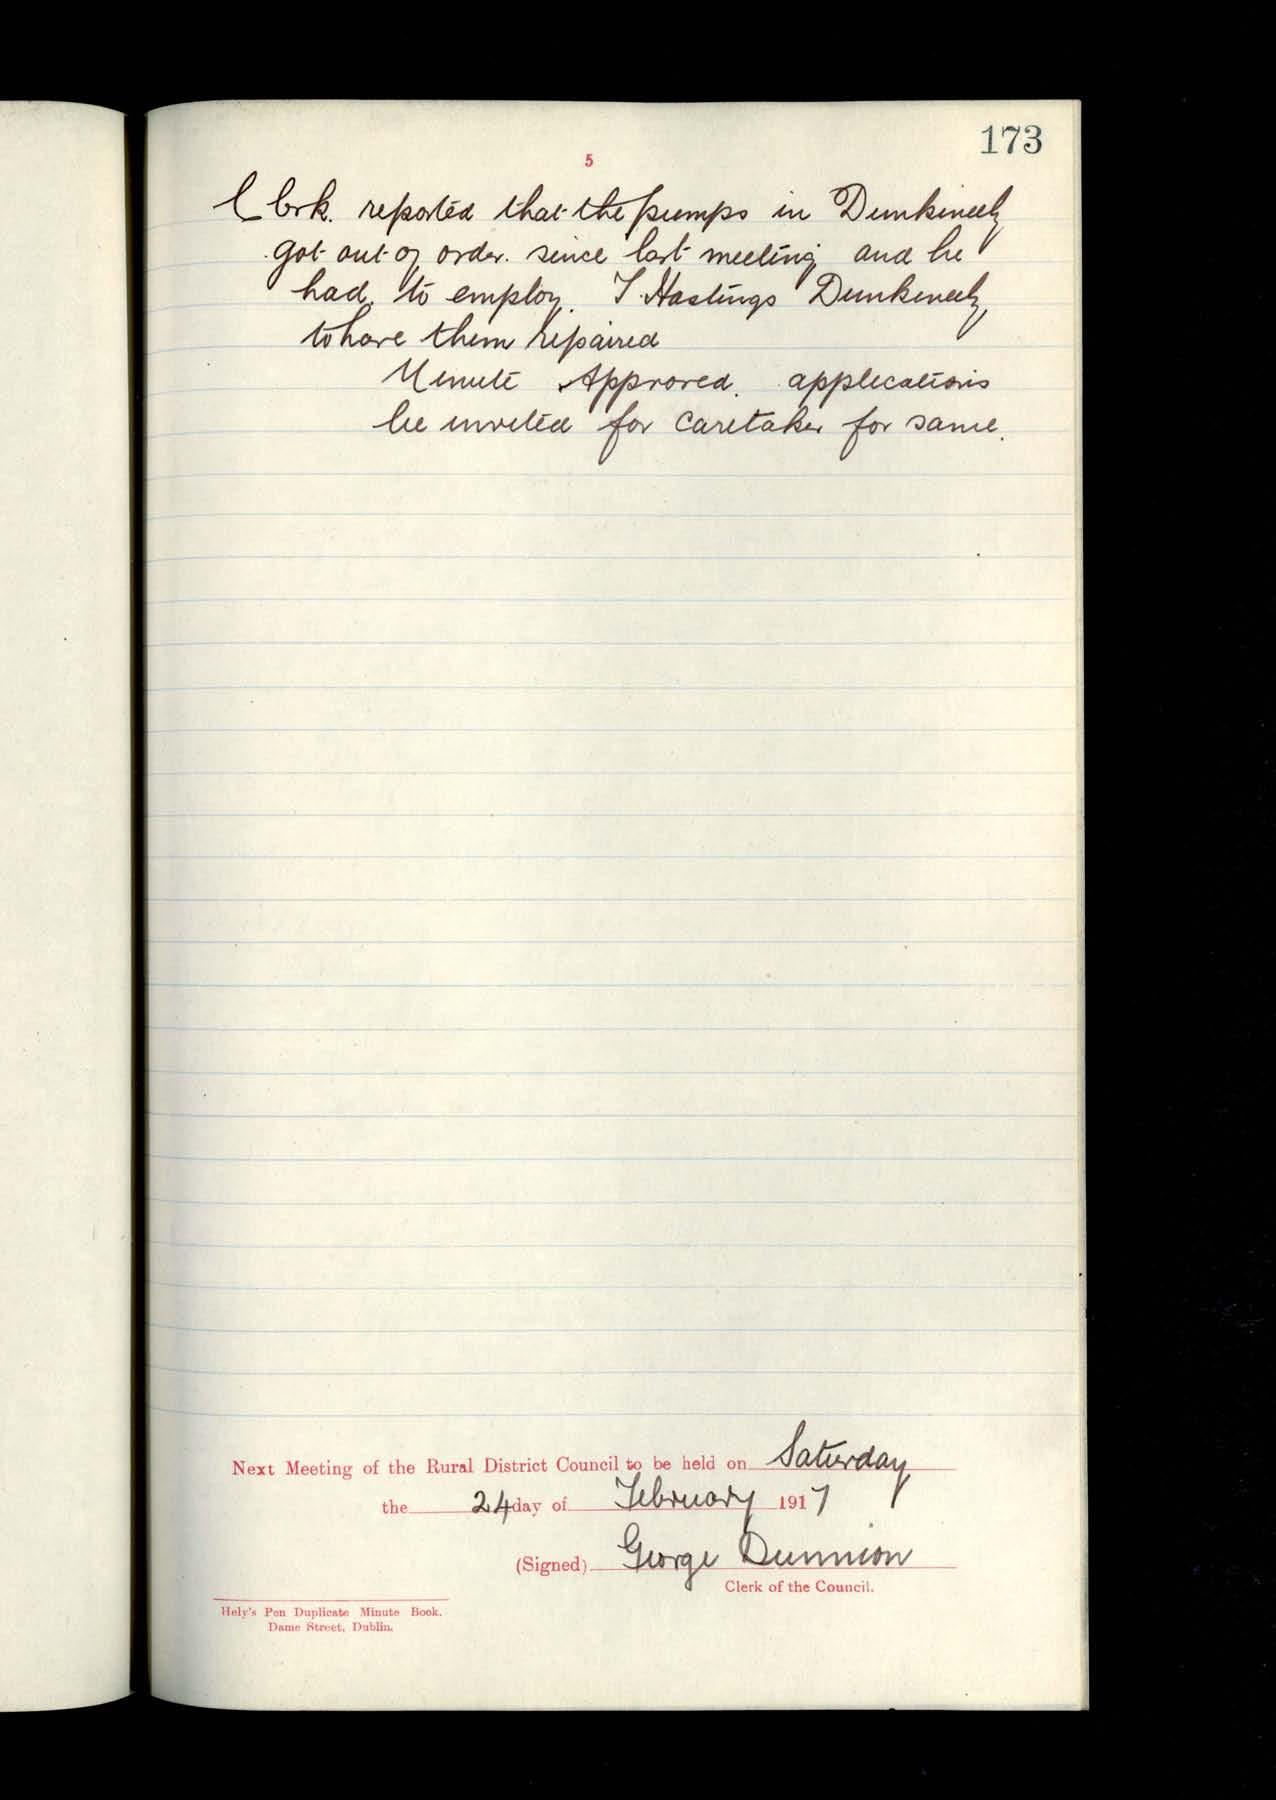 173
5
Clerk. reported that the pumps in Dunkineely
got out of order. since last meeting and he
had to employ. T. Hastings Dunkineely
to have them repaired
Minute Approved. applications
be invited for caretaker for same.
Next Meeting of the Rural District Council to be held on Saturday
the 24 day of February 1917
(Signed) George Dunnion
Clerk of the Council.
Hely's Pen Duplicate Minute Book.
Dame Street, Dublin.